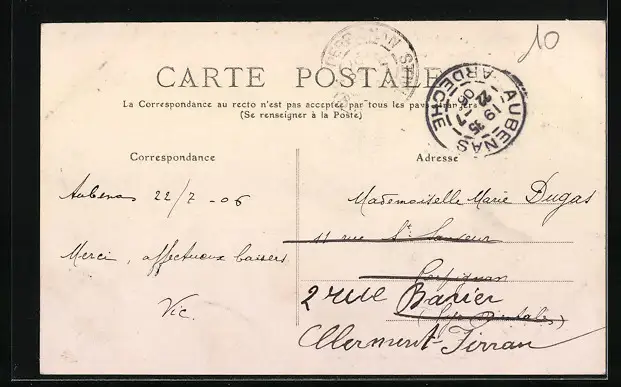 10
CARTE POSTALE
La Correspondance au recto n'est pas acceptée par tous les pays étrangers
(Se renseigner à la Poste)
AUBENAS
ARDECHE
Correspondance
Adresse
Aubenas 22/7 - 06
Merci, affectueux baisers
Vic.
Mademoiselle Marie Dugas
11 rue St Sauveur
Perpignan
2 rue Barier
Clermont-Ferran